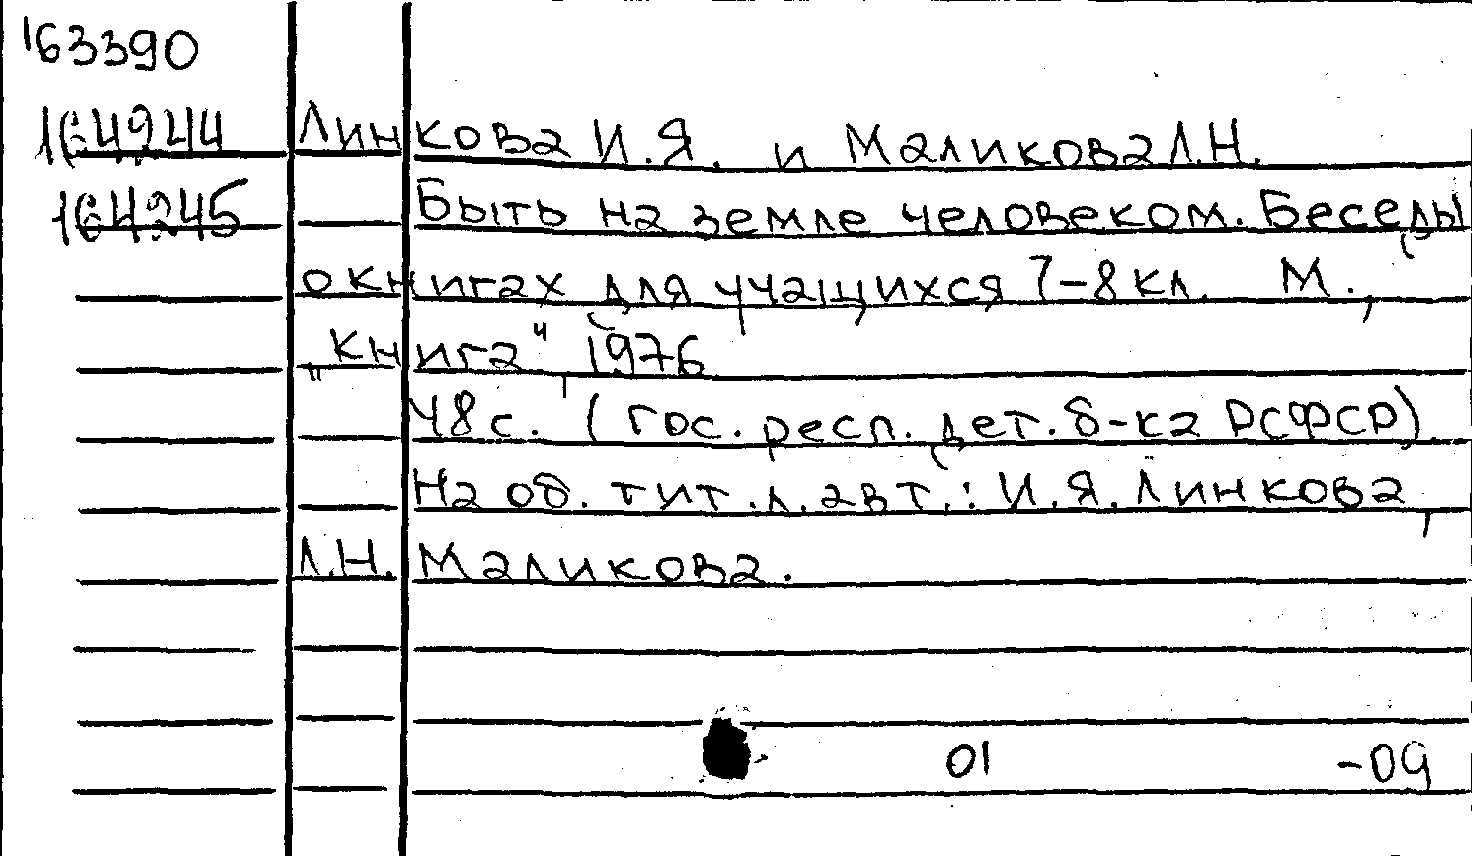 163390
164944 Линкова И.Я. и Маликова Л.Н.
164945 Быть на земле человеком. Беседы
о книгах для учащихся 7-8 кл. М.,
„книга", 1976
48 с. (Гос. респ. дет. б-ка РСФСР)
На об. тит. л. авт.: И.Я. Линкова,
Л.Н. Маликова.
01 -09